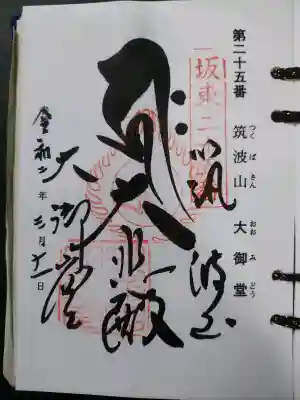 第二十五番 筑波山 大御堂
つくばさん おおみどう
坂東二
筑波山
大悲殿
大御堂
令和二年三月十一日